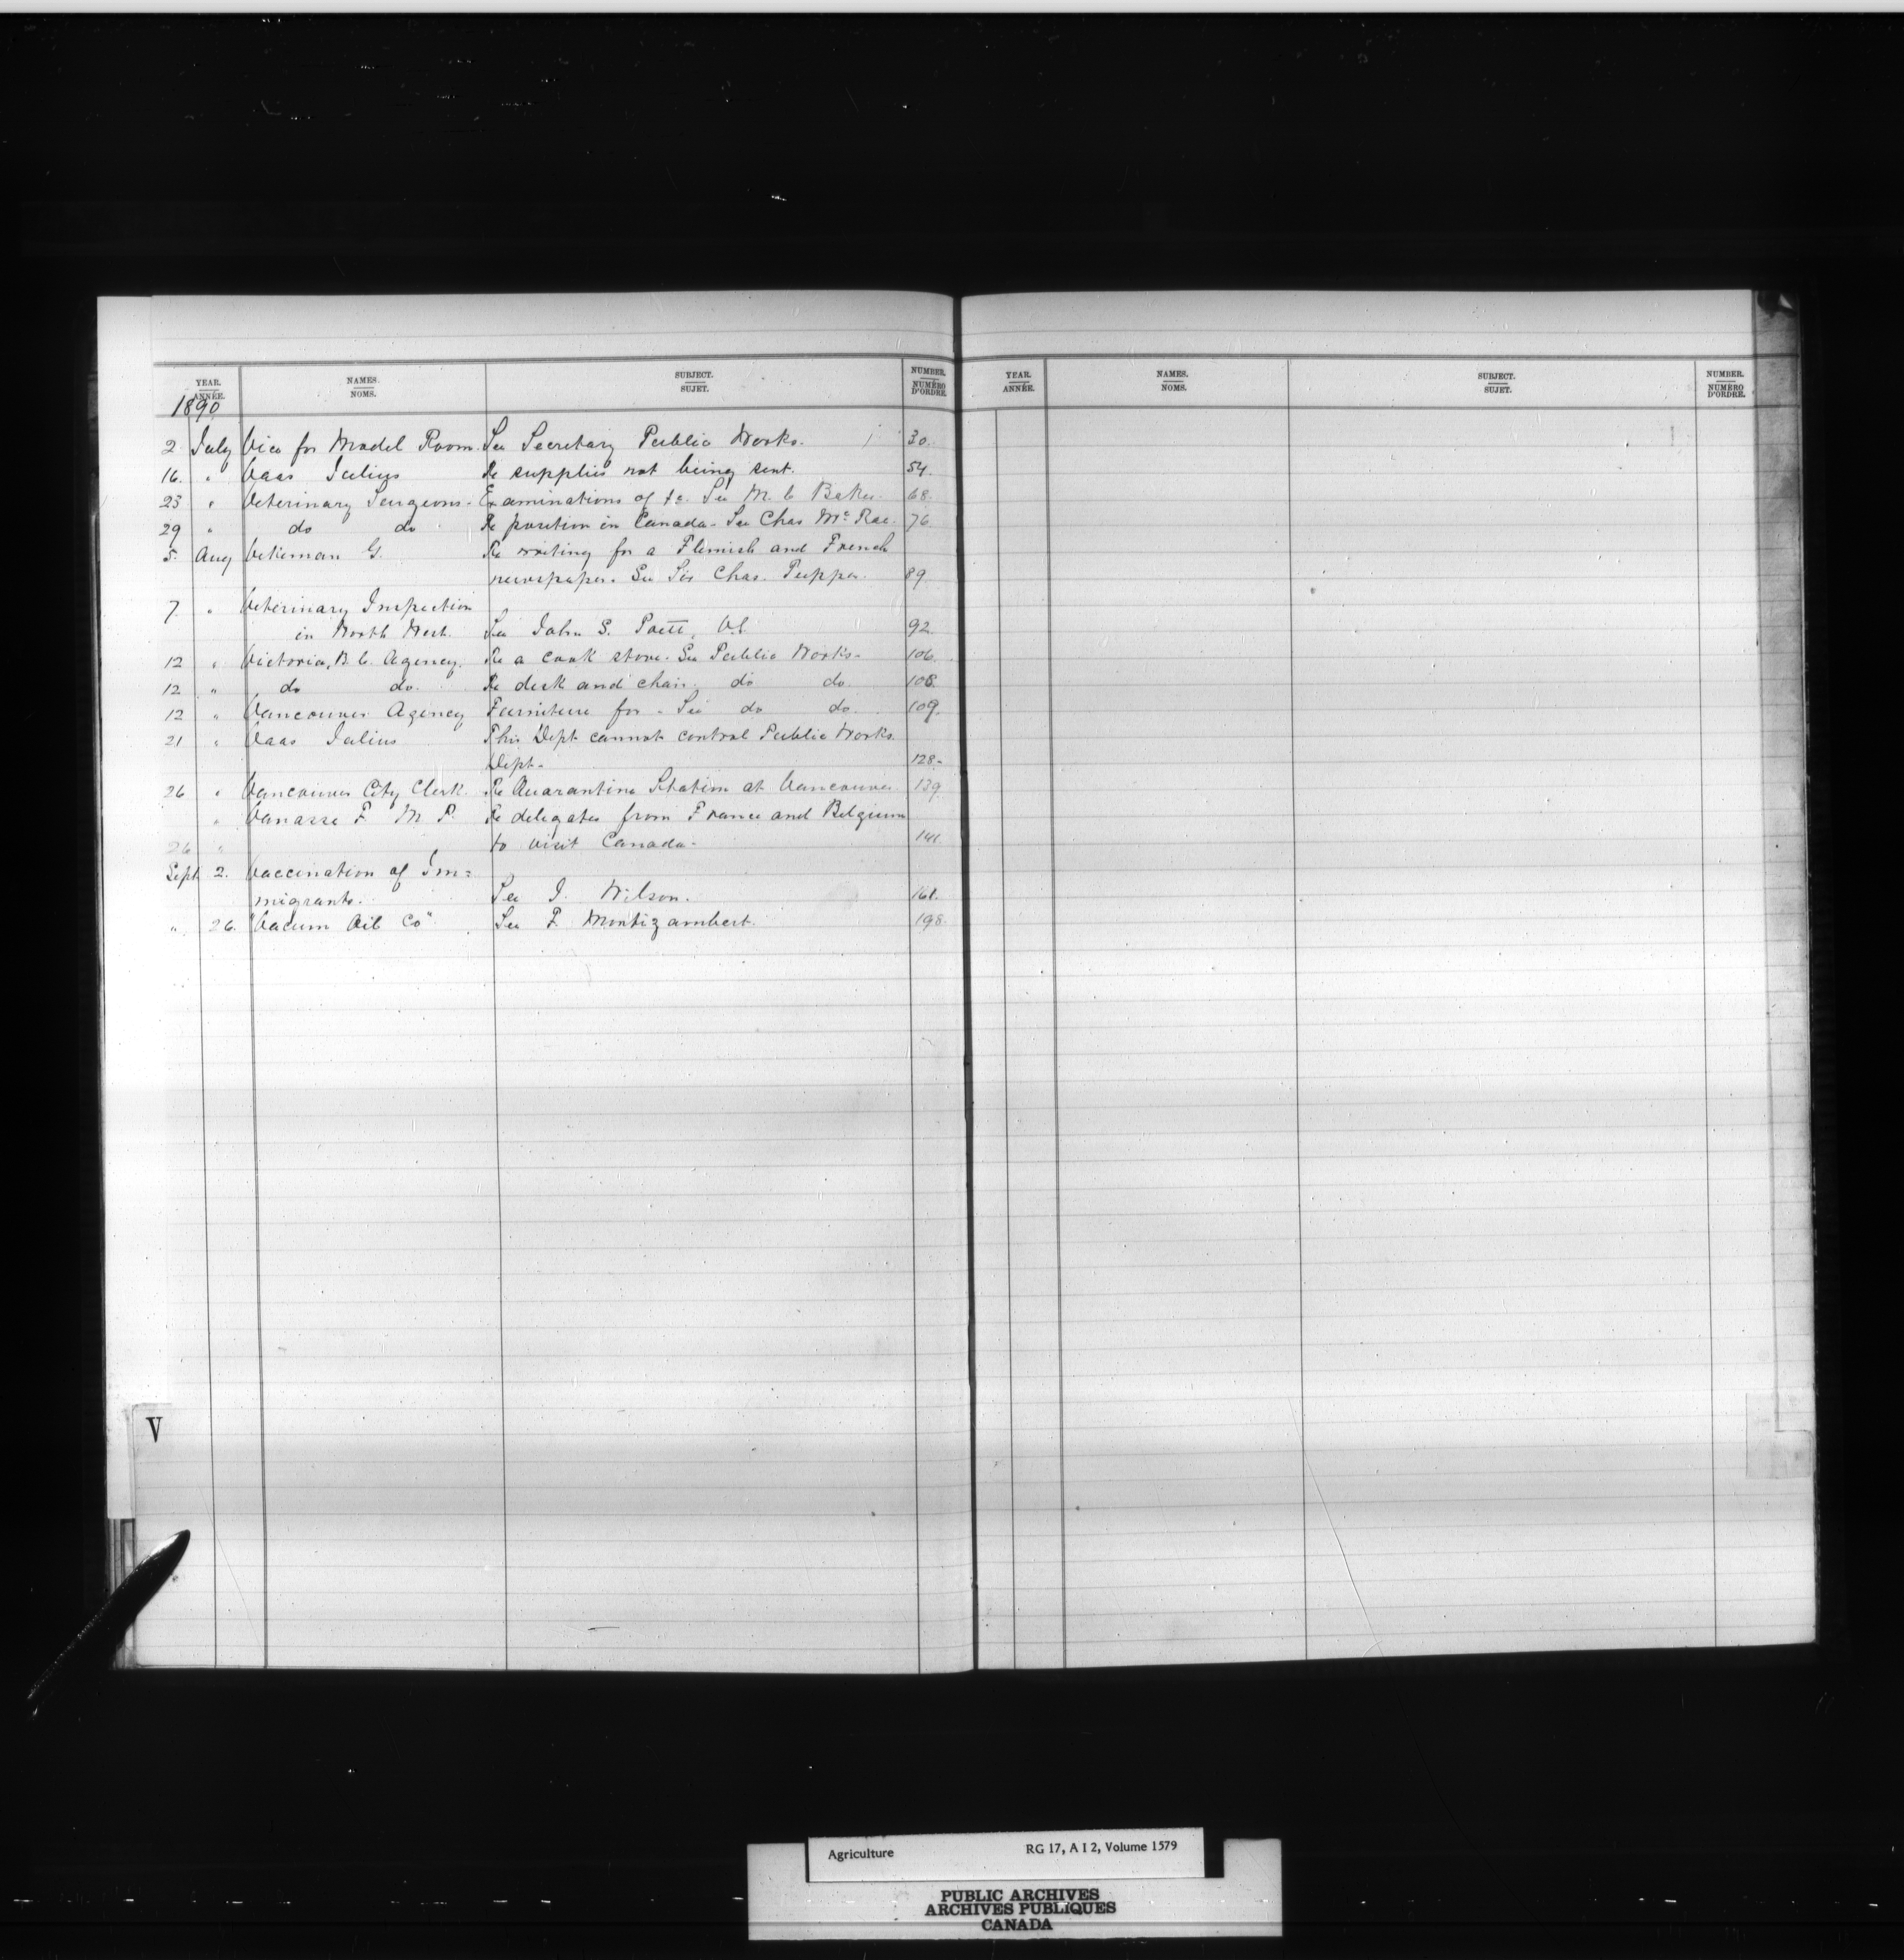 YEAR. NAMES. SUBJECT. NUMBER.
ANNÉE. NOMS. SUJET. NUMÉRO D'ORDRE.
YEAR. NAMES. SUBJECT. NUMBER.
ANNÉE. NOMS. SUJET. NUMÉRO D'ORDRE.
1890
2 July Vice for Model Room. See Secretary Public Works. 30.
16. " Vaas Julius Re supplies not being sent. 54.
23 " Veterinary Surgeons - Examinations of &c. See M. C Baker. 68.
29 " do do Re position in Canada - See Chas McRae. 76
5. Aug Vekeman G. Re writing for a Flemish and French
newspaper. See Sir Chas. Tupper. 89.
7. " Veterinary Inspection
in North West. See John S. Poett, V.S. 92.
12 " Victoria, B.C. Agency. Re a cook stove. See Public Works - 106.
12 " do do. Re desk and chair. do do. 108.
12 " Vancouver Agency Furniture for - See do do. 109.
21 " Vaas Julius This Dept cannot control Public Works
Dept - 128 -
26 " Vancouver City Clerk. Re Quarantine Station at Vancouver 139.
" Vanasse F. M P. Re delegates from France and Belgium
26 " to visit Canada - 141
Sept 2. Vaccination of Im=
migrants. See J. Wilson. 161.
" 26. "Vacum Oil Co" See F. Montizambert. 198.
V
Agriculture RG 17, A I 2, Volume 1579
PUBLIC ARCHIVES
ARCHIVES PUBLIQUES
CANADA